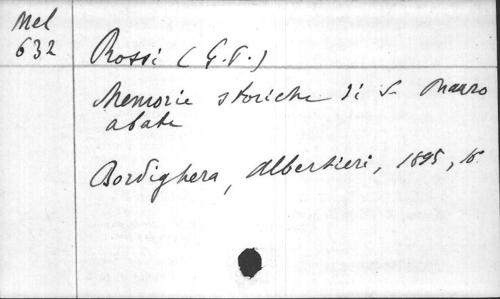 Mel
632
Rossi (G. P.)
Memorie storiche di S. Mauro
abate
Bordighera, Albertieri, 1895, 16